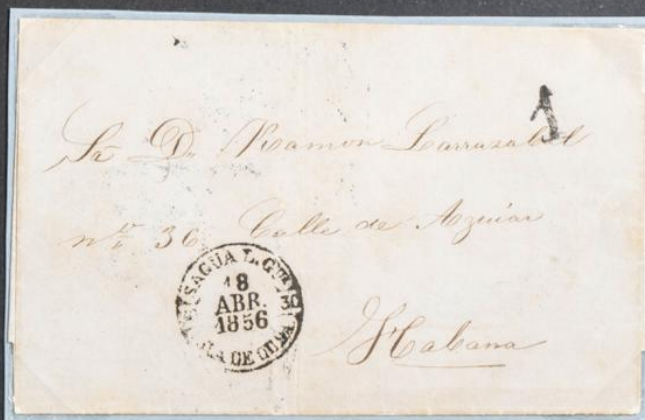 1
Sr. Dn. Ramon Larrazabal
no. 36 Calle de Aguiar
SAGUA LA GRANDE
18
ABR.
1856
30
ISLA DE CUBA
Habana